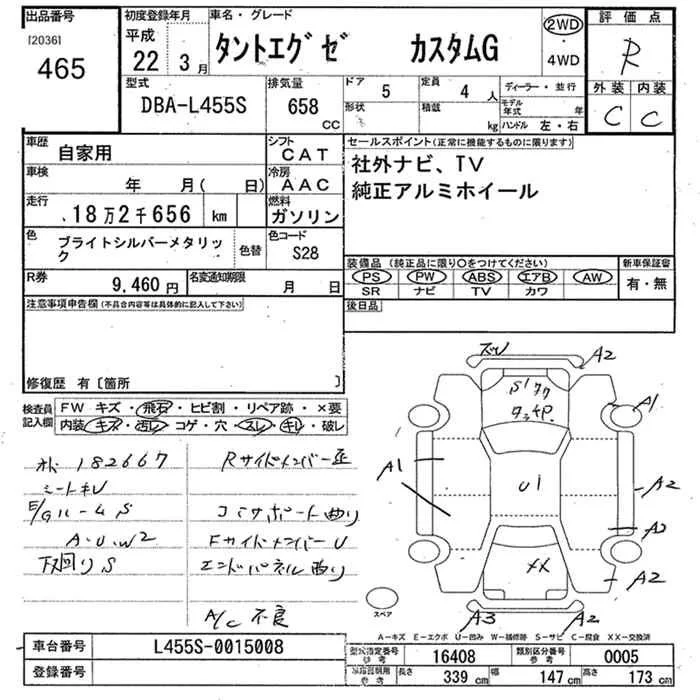 出品番号
120361
465
初度登録年月
平成
22 3月
車名・グレード
タントエグゼ カスタムG
2WD
・
4WD
評価点
R
外装 内装
C C
型式
DBA-L455S
排気量
658
CC
ドア
5
形状
定員
4 人
積載
kg
ディーラー・並行
モデル年式 年
ハンドル 左・右
車歴
自家用
シフト
CAT
車検
年 月( 日)
冷房
AAC
走行
18万2千656 km
燃料
ガソリン
色
ブライトシルバーメタリック
色替
色コード
S28
R券
9,460 円
名変通知期限
月 日
セールスポイント(正常に機能するものに限ります)
社外ナビ、TV
純正アルミホイール
装備品 (純正品に限り○をつけてください)
PS PW ABS エアB AW
SR ナビ TV カワ
新車保証書
有・無
後日品
注意事項申告欄(不具合内容等は具体的に記入して下さい)
修復歴 有〔箇所 〕
検査員記入欄
FW キズ・飛石・ヒビ割・リペア跡・×要
内装・キズ・汚レ・コゲ・穴・スレ・キレ・破レ
182667
シートキレ
E/Gルーム S
A・U・W2
下回り S
Rサイドメンバー
コアサポート曲り
FサイドメンバーU
エンドパネル曲り
A/C 不良
A2
A1
A1
A2
U1
A2
XX
A2
A3
A2
スペア
A－キズ E－エクボ U－凹み W－補修跡 S－サビ C－腐食 XX－交換済
車台番号
L455S-0015008
登録番号
型式指定番号
参考
16408
類別区分番号
参考
0005
参考
長さ
339 cm
幅
147 cm
高さ
173 cm